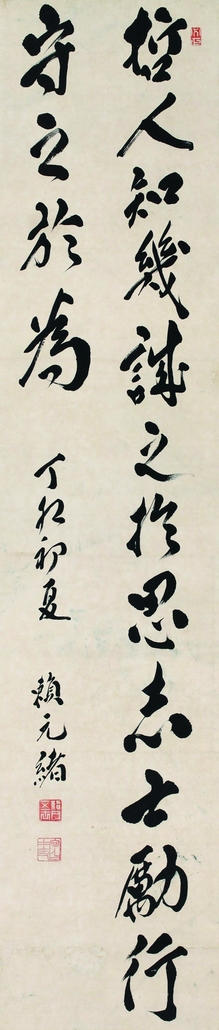 哲人知幾誠之於思志士勵行
守之於為
丁丑初夏
賴元緒